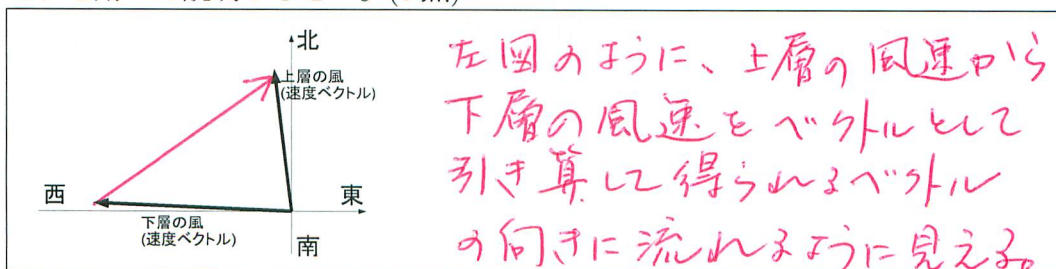 北
上層の風
(速度ベクトル)
西
東
下層の風
(速度ベクトル)
南
左図のように、上層の風速から
下層の風速をベクトルとして
引き算して得られるベクトル
の向きに流れるように見える。